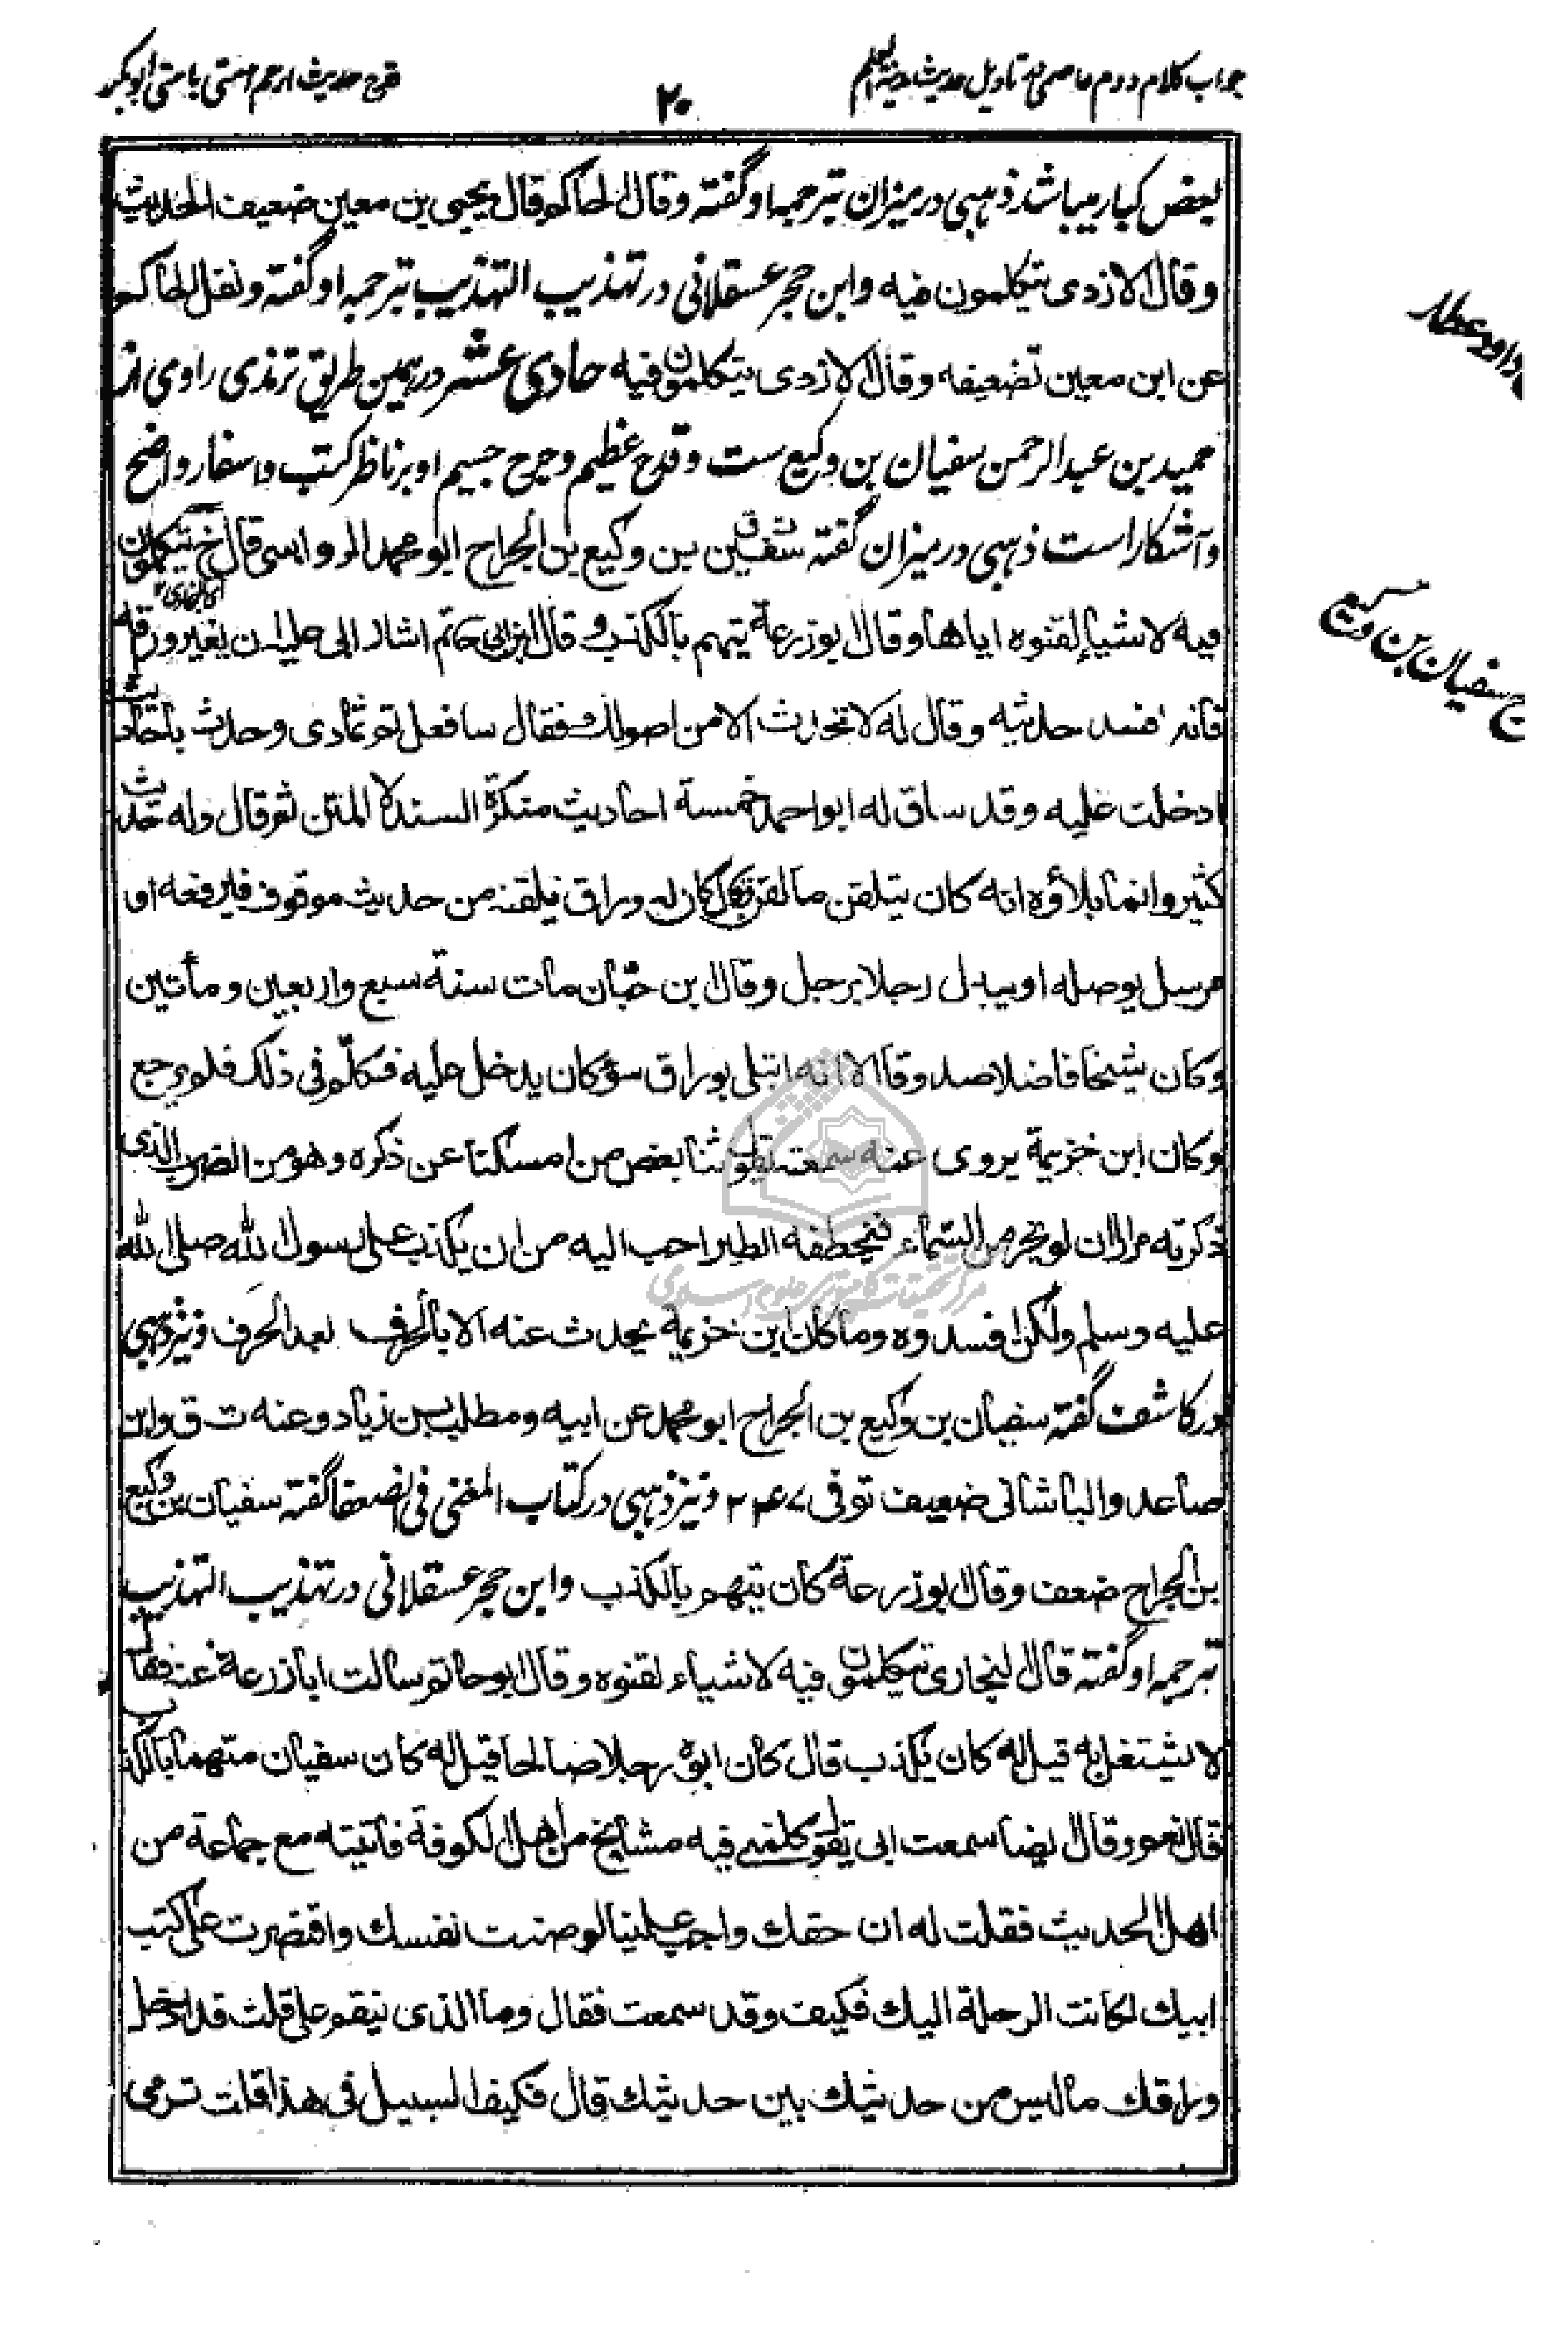 جواب کلام دوم عاصمی در تاویل حدیث مدینة العلم
۲۰
قدح حدیث ارحم امتی بامتی ابوبکر
بعض کبار میباشد ذهبی در میزان بترجمه او گفته وقال الحاکم قال یحیی بن معین ضعیف الحدیث
وقال الازدی یتکلمون فیه وابن حجر عسقلانی در تهذیب التهذیب بترجمه او گفته ونقل الحاکم
عن ابن معین تضعیفه وقال الازدی یتکلمون فیه حادی عشر در همین طریق ترمذی راوی از
حمید بن عبدالرحمن سفیان بن وکیع ست وقدح عظیم وجرح جسیم او بر ناظر کتب واسفار واضح
وآشکار است ذهبی در میزان گفته سفین ت ق بن وکیع بن الجراح ابو محمد الرواسی قال خ یتکلمون
ای البخاری ۱۲
فیه لاشیاء لقنوه ایاها وقال ابوزرعة یتهم بالکذب وقال ابن ابی حاتم اشار ابی علیه ان یغیر وراقه
فانه افسد حدیثه وقال له لا تحدث الا من اصولک فقال سافعل ثم تمادی وحدث باحادیث
ادخلت علیه وقد ساق له ابو احمد خمسة احادیث منکرة السند لا المتن ثم قال وله حدیث
کثیر وانما بلاؤه انه کان یتلقن ما لقن یقال کان له وراق یلقنه من حدیث موقوف فیرفعه او
مرسل یوصله او یبدل رجلا برجل وقال ابن حبان مات سنة سبع واربعین ومأتین
وکان شیخا فاضلا صدوقا الا انه ابتلی بوراق سوء کان یدخل علیه فکلم فی ذلک فلم یرجع
وکان ابن خزیمة یروی عنه سمعته یقول ثنا بعض من امسکنا عن ذکره وهو من الضرب الذی
ذکرته مرارا ان لو یخر من السماء فتخطفه الطیر احب الیه من ان یکذب علی رسول الله صلی الله
علیه وسلم ولکن افسدوه وما کان ابن خزیمة یحدث عنه الا بالحرف بعد الحرف ونیز ذهبی
در کاشف گفته سفیان بن وکیع بن الجراح ابو محمد عن ابیه ومطلب بن زیاد وعنه ت ق وابن
صاعد والباشانی ضعیف توفی ۲۴۷ ونیز ذهبی در کتاب المغنی فی الضعفا گفته سفیان بن وکیع
بن الجراح ضعف وقال ابوزرعة کان یتهم بالکذب وابن حجر عسقلانی در تهذیب التهذیب
بترجمه او گفته قال البخاری یتکلمون فیه لاشیاء لقنوه وقال ابوحاتم سالت ابازرعة عنه فقال
لا یشتغل به قیل له کان یکذب قال کان ابوه رجلا صالحا قیل له کان سفیان متهما بالکذب
قال نعم وقال ایضا سمعت ابی یقول کلمنی فیه مشایخ من اهل الکوفة فاتیته مع جماعة من
اهل الحدیث فقلت له ان حقک واجب علینا لو صنت نفسک واقتصرت علی کتب
ابیک لکانت الرحلة الیک فکیف وقد سمعت فقال وما الذی ینقم علی قلت قد ادخل
وراقک ما لیس من حدیثک بین حدیثک قال فکیف السبیل فی هذا قلت ترمی
داود عطار
سفیان بن وکیع
مرکز تحقیقات کامپیوتری علوم اسلامی